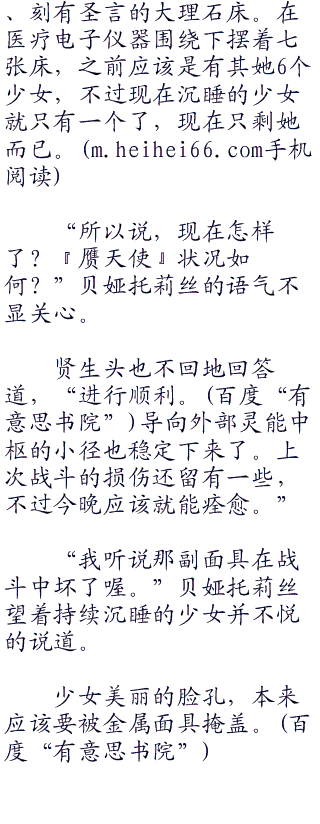 、刻有圣言的大理石床。在
医疗电子仪器围绕下摆着七
张床，之前应该是有其她6个
少女，不过现在沉睡的少女
就只有一个了，现在只剩她
而已。(m.heihei66.com手机
阅读)
“所以说，现在怎样
了？『赝天使』状况如
何？”贝娅托莉丝的语气不
显关心。
贤生头也不回地回答
道，“进行顺利。(百度“有
意思书院”)导向外部灵能中
枢的小径也稳定下来了。上
次战斗的损伤还留有一些，
不过今晚应该就能痊愈。”
“我听说那副面具在战
斗中坏了喔。”贝娅托莉丝
望着持续沉睡的少女并不悦
的说道。
少女美丽的脸孔，本来
应该要被金属面具掩盖。(百
度“有意思书院”)